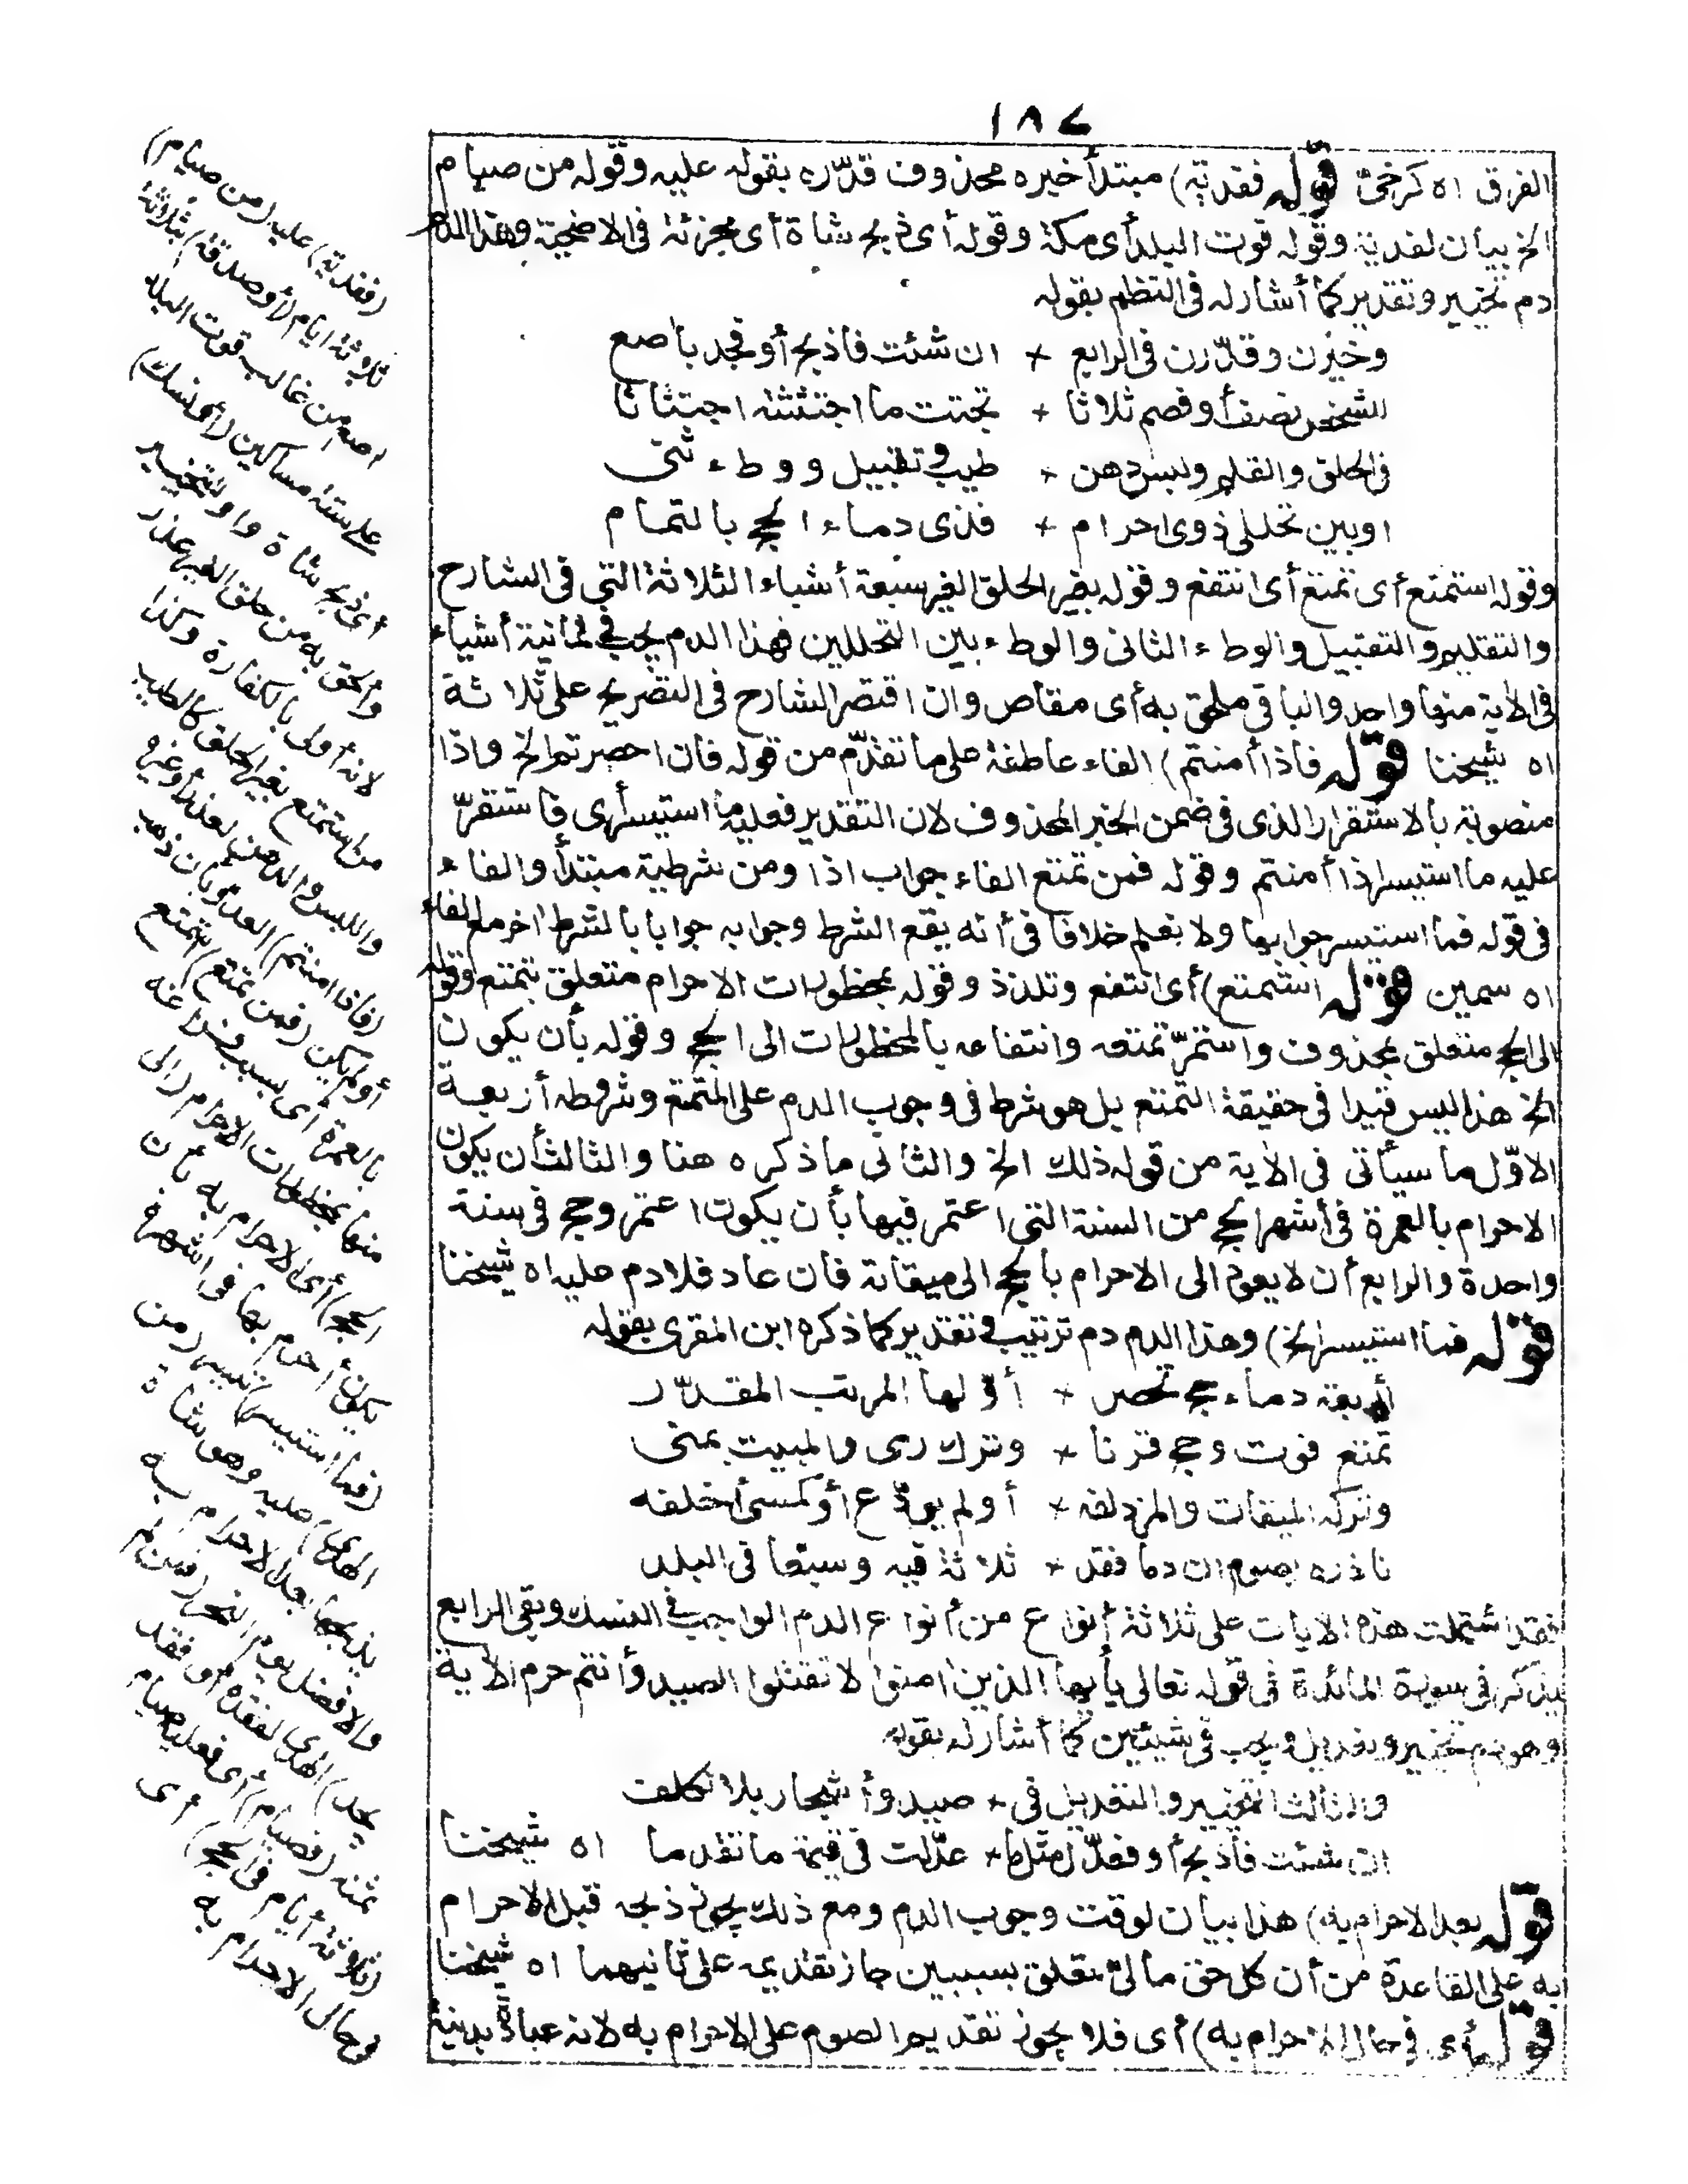 ١٨٧
الفرق اه كرخى قوله ففدية) مبتدأ خبره محذوف قدّره بقوله عليه وقوله من صيام
الخ بيان لفدية وقوله قوت البلد أى مكة وقوله أى ذبح شاة أى مجزئة فى الاضحية وهذا الدم
دم تخيير وتقدير كما أشار له فى النظم بقوله
وخيرن وقدّرن فى الرابع + ان شئت فاذبح أو فجد بآصع
للشخص نصف أو فصم ثلاثا + تجتث ما اجتثثته اجتثاثا
فى الحلق والقلم ولبس دهن + طيب وتقبيل ووطء ثنى
او بين تحللى ذوى احرام + فذى دماء الحج بالتمام
وقوله استمتع أى تمتع أى انتفع وقوله بغير الحلق الغير سبعة أشياء الثلاثة التى فى الشارح
والتقليم والتقبيل والوطء الثانى والوطء بين التحللين فهذا الدم يجب فى ثمانية أشياء
فى الآية منها واحد والباقى ملحق به أى مقاس وان اقتصر الشارح فى التصريح على ثلاثة
اه شيخنا قوله فاذا أمنتم) الفاء عاطفة على ما تقدّم من قوله فان احصرتم الخ واذا
منصوبة بالاستقرار الذى فى ضمن الخبر المحذوف لان التقدير فعليه ما استيسر أى فاستقرّ
عليه ما استيسر اذا أمنتم وقوله فمن تمتع الفاء جواب اذا ومن شرطية مبتدأ والفاء
فى قوله فما استيسر جوابها ولا يعلم خلافا فى أنه يقع الشرط وجوابه جوابا بالشرط اخر مع الفاء
اه سمين قوله استمتع) أى انتفع وتلذذ وقوله بمحظورات الاحرام متعلق بتمتع وقوله
الى الحج متعلق بمحذوف واستمرّ تمتعه وانتفاعه بالمحظورات الى الحج وقوله بأن يكون
الخ هذا ليس قيدا فى حقيقة التمتع بل هو شرط فى وجوب الدم على المتمتع وشروطه أربعة
الاوّل ما سيأتى فى الآية من قوله ذلك الخ والثانى ما ذكره هنا والثالث أن يكون
الاحرام بالعمرة فى أشهر الحج من السنة التى اعتمر فيها بأن يكون اعتمر وحج فى سنة
واحدة والرابع أن لا يعود الى الاحرام بالحج الى ميقاته فان عاد فلا دم عليه اه شيخنا
قوله فما استيسر الخ) وهذا الدم دم ترتيب وتقدير كما ذكره ابن المقرى بقوله
أربعة دماء حج تحصر + أوّلها المرتب المقدّر
تمتع فوت وحج قرنا + وترك رمى والمبيت بمنى
وتركه الميقات والمزدلفه + أو لم يودّع أو كمشى أخلفه
ناذره يصوم ان دما فقد + ثلاثة فيه وسبعا فى البلد
فقد اشتملت هذه الآيات على ثلاثة أنواع من أنواع الدم الواجب فى النسك وبقى الرابع
يذكر فى سورة المائدة فى قوله تعالى يأيها الذين امنوا لا تقتلوا الصيد وأنتم حرم الآية
وهو دم تخيير وتعديل ويجب فى شيئين كما أشار له بقوله
والثالث التخيير والتعديل فى + صيد وأشجار بلا تكلف
ان شئت فاذبح أو فعدّل مثل ما + عدّلت فى قيمة ما تقدما اه شيخنا
قوله بعد الاحرام به) هذا بيان لوقت وجوب الدم ومع ذلك يجوز ذبحه قبل الاحرام
به على القاعدة من أن كل حق مالىّ تعلق بسببين جاز تقديمه على ثانيهما اه شيخنا
قوله أى فى حال الاحرام به) أى فلا يجوز تقديم الصوم على الاحرام به لانه عبادة بدنية
(ففدية) عليه (من صيام)
ثلاثة أيام (أو صدقة) بثلاثة
اصع من غالب قوت البلد
على ستة مساكين (أو نسك)
أى ذبح شاة واو للتخيير
وألحق به من حلق لغير عذر
لانه أولى بالكفارة وكذا
من استمتع بغير الحلق كالطيب
واللبس والدهن لعذر أو غيره
(فاذا امنتم) العدو بأن ذهب
أو لم يكن (فمن تمتع) استمتع
بالعمرة) أى بسبب فراغه
منها بمحظورات الاحرام (الى
الحج) أى الاحرام به بأن
يكون أحرم بها فى اشهره
(فما استيسر) تيسر (من
الهدى) عليه وهو شاة
يذبحها بعد الاحرام به
والافضل يوم النحر (فمن لم
يجد) الهدى لفقده أو فقد
ثمنه (فصيام) أى فعليه صيام
(ثلاثة أيام فى الحج) أى
فى حال الاحرام به